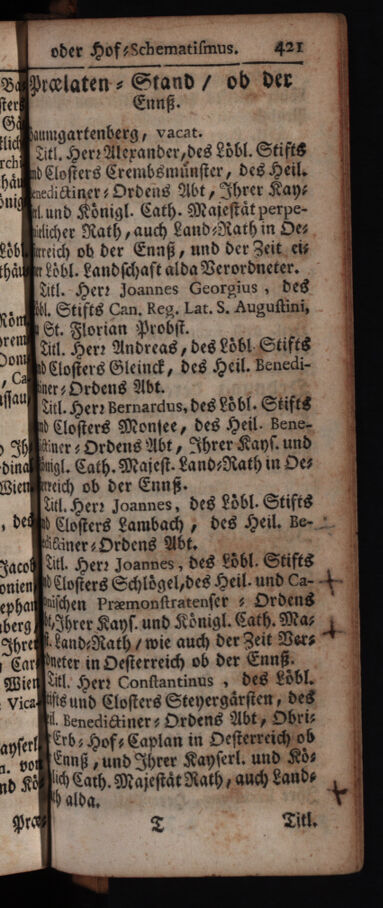 oder Hof-Schematismus. 421
Prælaten-Stand / ob der
Ennß.
Baumgartenberg, vacat.
Titl. Herr Alexander, des Löbl. Stifts
Closters Crembsmünster, des Heil.
Benedictiner-Ordens Abt, Ihrer Kay-
und Königl. Cath. Majestät perpe-
tuirlicher Rath, auch Land-Rath in Oe-
sterreich ob der Ennß, und der Zeit ei-
ner Löbl. Landschaft alda Verordneter.
Titl. Herr Joannes Georgius, des
Löbl. Stifts Can. Reg. Lat. S. Augustini,
St. Florian Probst.
Titl. Herr Andreas, des Löbl. Stifts
Closters Gleinck, des Heil. Benedi-
ctiner-Ordens Abt.
Titl. Herr Bernardus, des Löbl. Stifts
Closters Monsee, des Heil. Bene-
dictiner-Ordens Abt, Ihrer Kays. und
Königl. Cath. Majest. Land-Rath in Oe-
sterreich ob der Ennß.
Titl. Herr Joannes, des Löbl. Stifts
Closters Lambach, des Heil. Be-
nedictiner-Ordens Abt.
Titl. Herr Joannes, des Löbl. Stifts
Closters Schlögel, des Heil. und Ca-
nonischen Præmonstratenser-Ordens
Ihrer Kays. und Königl. Cath. Ma-
Land-Rath / wie auch der Zeit Ver-
ordneter in Oesterreich ob der Ennß.
Titl. Herr Constantinus, des Löbl.
Stifts und Closters Steyergärsten, des
Heil. Benedictiner-Ordens Abt, Obri-
Erb-Hof-Caplan in Oesterreich ob
Ennß, und Ihrer Kayserl. und Kö-
niglich Cath. Majestät Rath, auch Land-
alda.
T Titl.